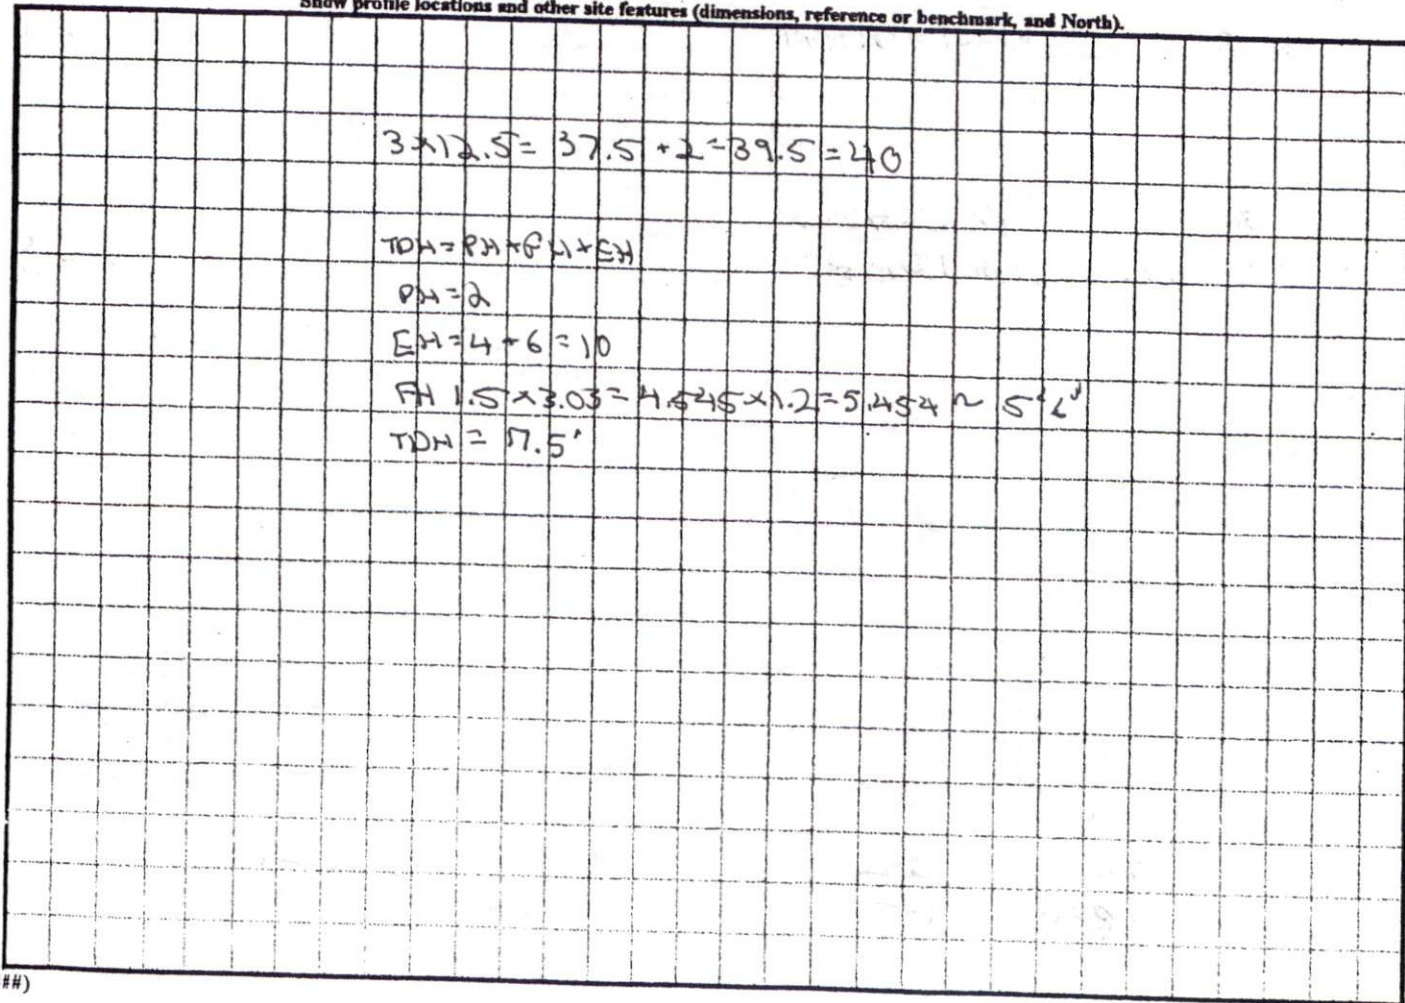 Show profile locations and other site features (dimensions, reference or benchmark, and North).
3×12.5= 37.5 +2=39.5=40
TDH=PH+FH+EH
PH=2
EH=4+6=10
FH 1.5×3.03=4.545×1.2=5.454 ~ 5'6"
TDH = 17.5'
##)